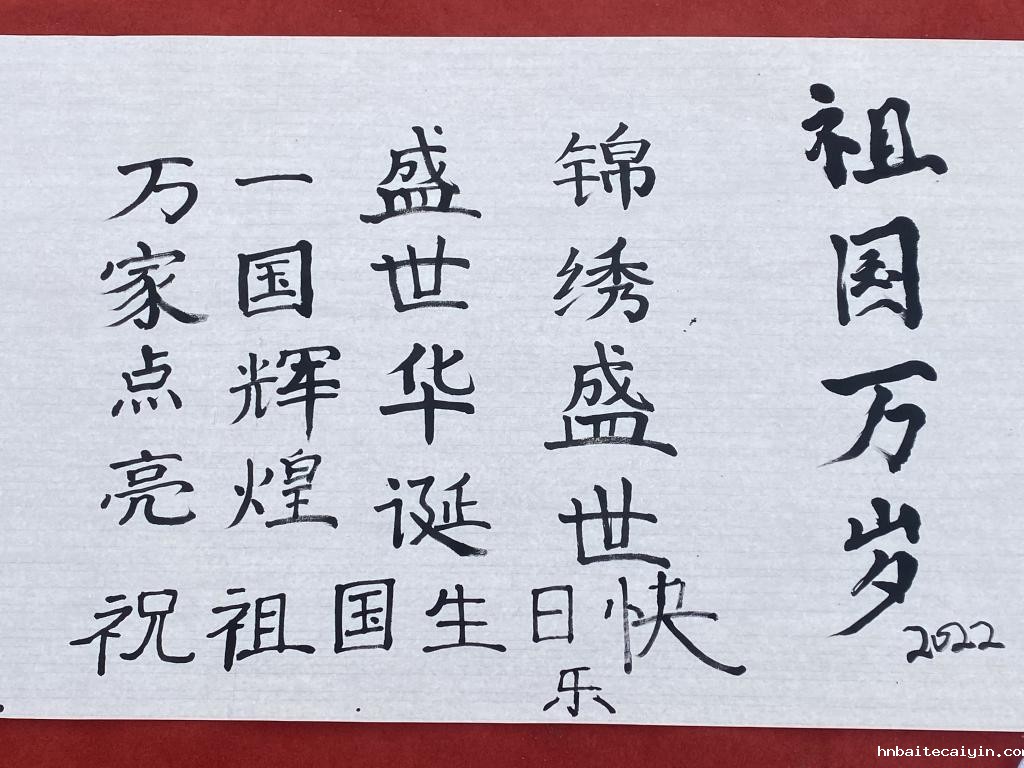 祖国万岁
2022
锦绣盛世
盛世华诞
一国辉煌
万家点亮
祝祖国生日快
乐
hnbaitecaiyin.com